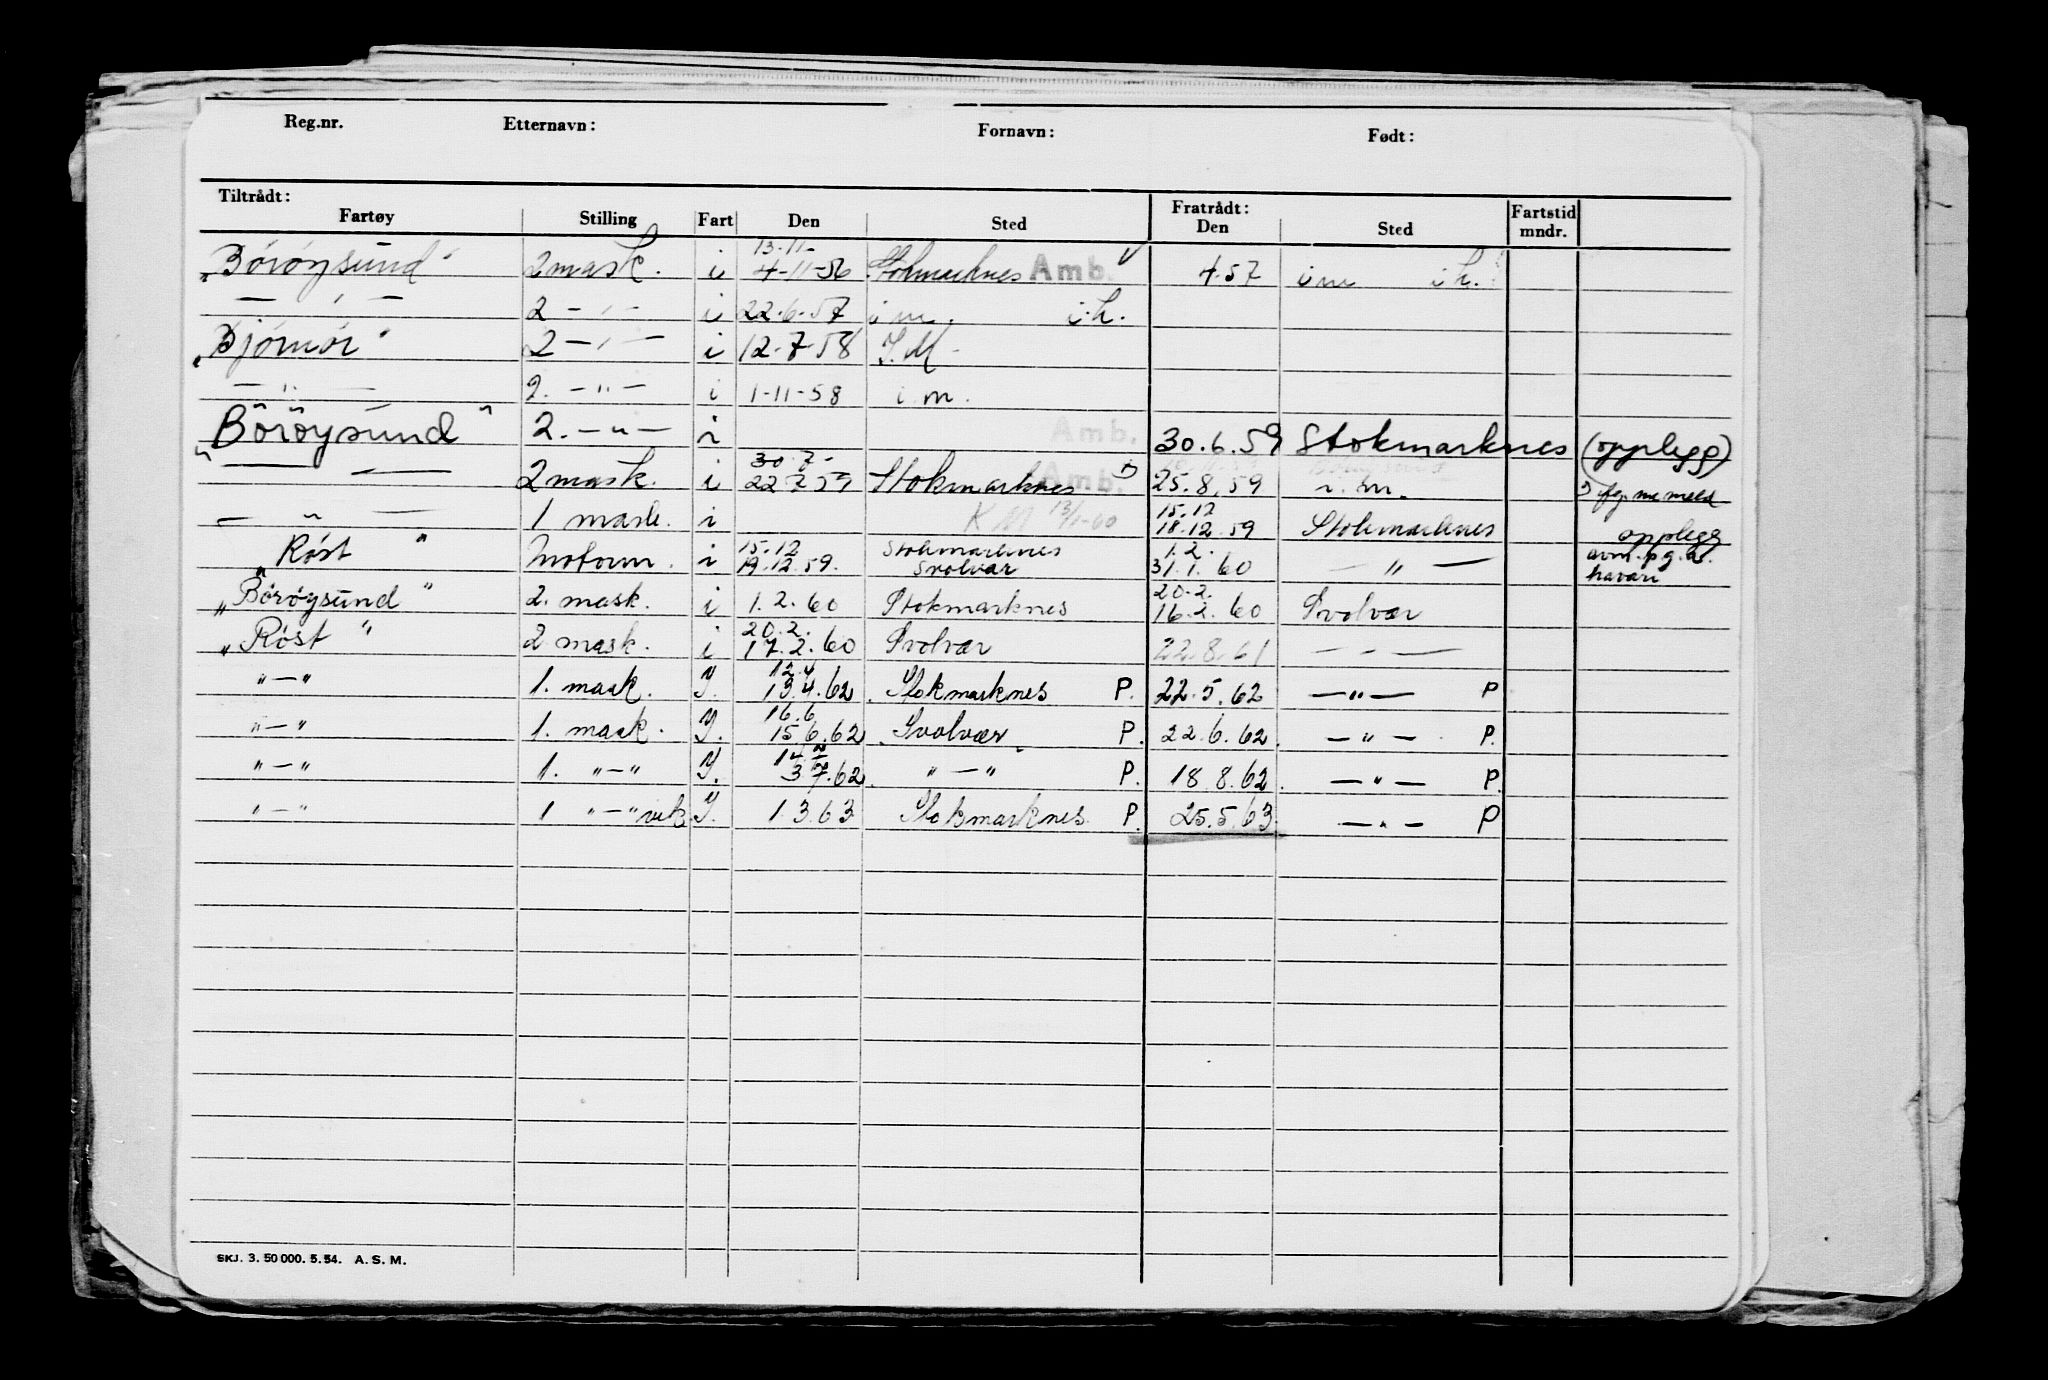 Reg.nr. Etternavn: Fornavn: Født:
Tiltrådt: Fratrådt:
Fartøy Stilling Fart Den Sted Den Sted Fartstid mndr.
13-11-
"Börøysund" 2 mask. i 4-11-56 Stokmarknes Amb. 4.57 i m i h.
— " — 2 — " — i 22-6-57 i m. i.h.
"Bjørnør" 2 — " — i 12-7-58 I.M
— " — 2. — " — i 1-11-58 i m.
"Börøysund" 2. — " — i Amb. 30.6.59 Stokmarknes (opplegg)
30.7-
— — 2 mask. i 22 7 59 Stokmarknes Amb. 25.8.59 i.m.
15.12
— " — 1 mask. i K M 13/1-60 18.12.59 Stokmarknes opplegg
15.12 Stokmarknes 1.2.
"Røst" Motorm. i 19.12.59. Svolvær 31.1.60 — " — avm. p.g.a. havari
20.2.
"Börøysund" 2. mask. i 1.2.60 Stokmarknes 16.2.60 Svolvær
20.2.
"Röst" 2 mask. i 17.2.60 Svolvær 22.8.61 — " —
12.4
" — " 1. mask. Y. 13.4.62 Stokmarknes P. 22.5.62 — " — P
16.6
" — " 1. mask. Y. 15 6.62 Svolvær P. 22.6.62. — " — P.
" — " 1. " — " Y. 3 7.62 " — " P. 18.8.62. — " — P.
" — " 1 " — " vik. Y. 1 3.63 Stokmarknes. P. 25.5.63. — " — P
SKJ. 3. 50 000. 5. 54. A. S. M.